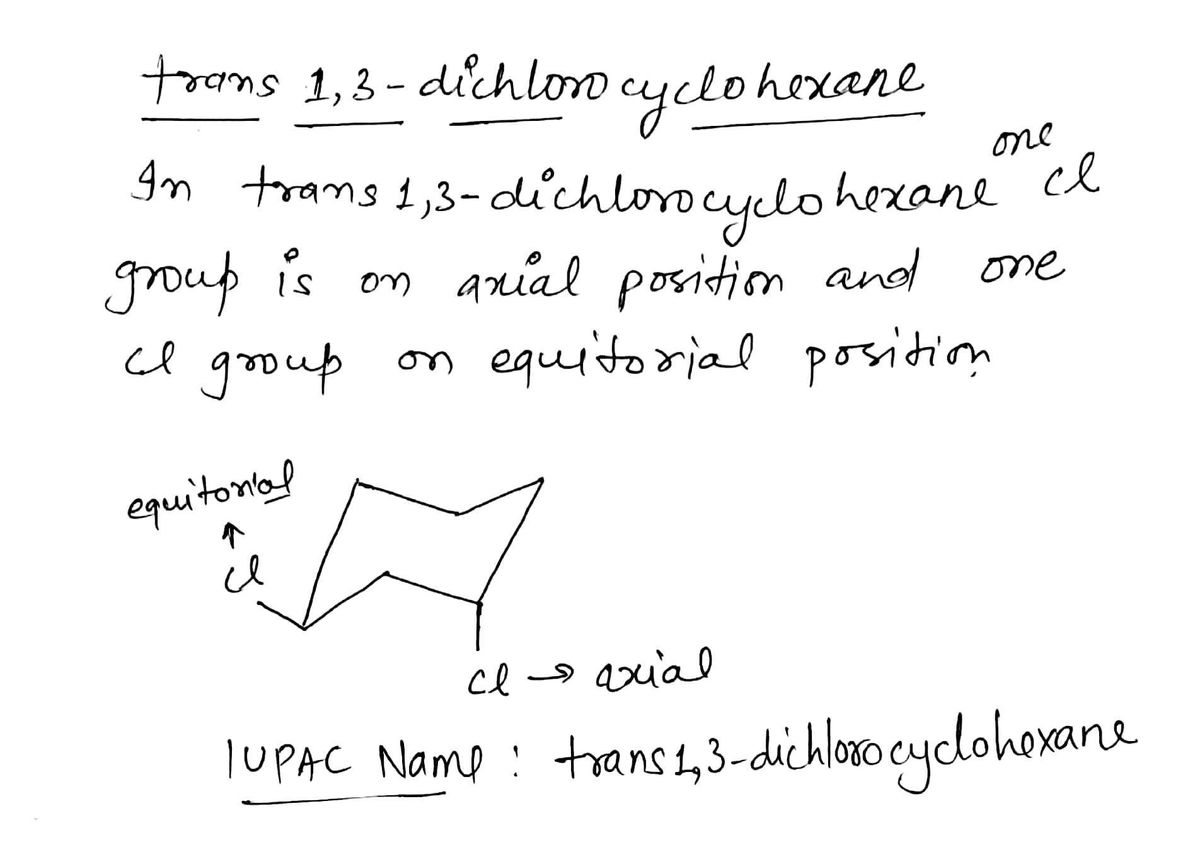 trans 1,3-dichlorocyclohexane
In trans 1,3-dichlorocyclohexane one Cl
group is on axial position and one
Cl group on equitorial position
equitorial
↑
Cl
Cl → axial
IUPAC Name : trans1,3-dichlorocyclohexane